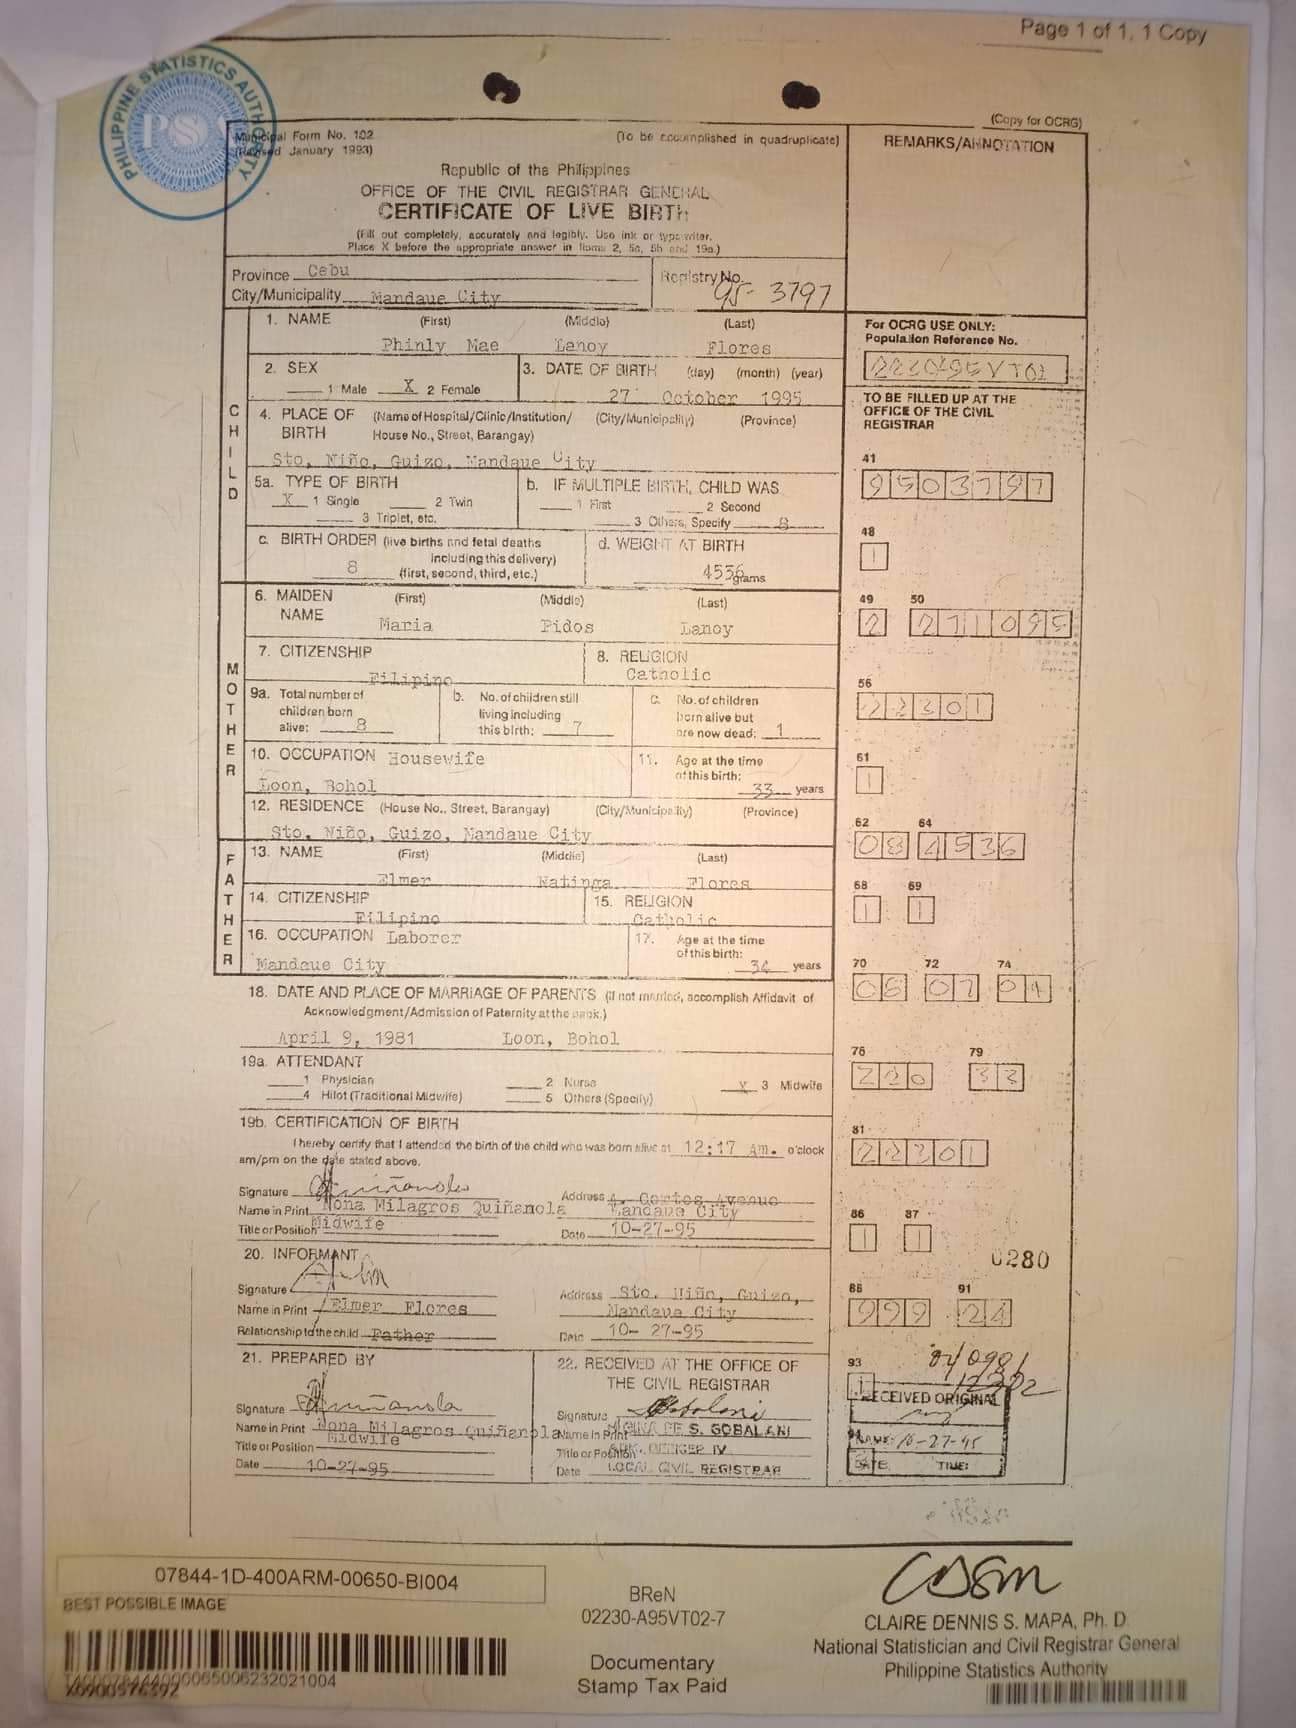 Page 1 of 1, 1 Copy
PHILIPPINE STATISTICS AUTHORITY
PSA
(Copy for OCRG)
Municipal Form No. 102 (To be accomplished in quadruplicate)
(Revised January 1993)
REMARKS/ANNOTATION
Republic of the Philippines
OFFICE OF THE CIVIL REGISTRAR GENERAL
CERTIFICATE OF LIVE BIRTH
(Fill out completely, accurately and legibly. Use ink or typewriter.
Place X before the appropriate answer in Items 2, 5a, 5b and 19a.)
Province Cebu
City/Municipality Mandaue City
Registry No. 95-3797
CHILD
1. NAME (First) (Middle) (Last)
Phinly Mae Lanoy Flores
2. SEX
1 Male X 2 Female
3. DATE OF BIRTH (day) (month) (year)
27 October 1995
4. PLACE OF BIRTH (Name of Hospital/Clinic/Institution/ House No., Street, Barangay) (City/Municipality) (Province)
Sto, Niño, Guizo, Mandaue City
5a. TYPE OF BIRTH
X 1 Single 2 Twin
3 Triplet, etc.
b. IF MULTIPLE BIRTH, CHILD WAS
1 First 2 Second
3 Others, Specify 8
c. BIRTH ORDER (live births and fetal deaths
including this delivery)
8 (first, second, third, etc.)
d. WEIGHT AT BIRTH
4536 grams
MOTHER
6. MAIDEN NAME (First) (Middle) (Last)
Maria Pidos Lanoy
7. CITIZENSHIP
Filipino
8. RELIGION
Catholic
9a. Total number of
children born
alive: 8
b. No. of children still
living including
this birth: 7
c. No. of children
born alive but
are now dead: 1
10. OCCUPATION Housewife
Loon, Bohol
11. Age at the time
of this birth:
33 years
12. RESIDENCE (House No., Street, Barangay) (City/Municipality) (Province)
Sto, Niño, Guizo, Mandaue City
FATHER
13. NAME (First) (Middle) (Last)
Elmer Natinga Flores
14. CITIZENSHIP
Filipino
15. RELIGION
Catholic
16. OCCUPATION Laborer
Mandaue City
17. Age at the time
of this birth:
34 years
18. DATE AND PLACE OF MARRIAGE OF PARENTS (If not married, accomplish Affidavit of
Acknowledgment/Admission of Paternity at the back.)
April 9, 1981 Loon, Bohol
19a. ATTENDANT
1 Physician 2 Nurse X 3 Midwife
4 Hilot (Traditional Midwife) 5 Others (Specify)
19b. CERTIFICATION OF BIRTH
I hereby certify that I attended the birth of the child who was born alive at 12:17 Am. o'clock
am/pm on the date stated above.
Signature
Name in Print Nona Milagros Quiñanola
Title or Position Midwife
Address A. Cortes Avenue
Mandaue City
Date 10-27-95
20. INFORMANT
Signature
Name in Print Elmer Flores
Relationship to the child Father
Address Sto. Niño, Guizo,
Mandaue City
Date 10-27-95
21. PREPARED BY
Signature
Name in Print Nona Milagros Quiñanola
Title or Position Midwife
Date 10-27-95
22. RECEIVED AT THE OFFICE OF
THE CIVIL REGISTRAR
Signature
Name in Print S. GOBALANI
Title or Position OFFICER IV
Date LOCAL CIVIL REGISTRAR
For OCRG USE ONLY:
Population Reference No.
TO BE FILLED UP AT THE
OFFICE OF THE CIVIL
REGISTRAR
41
9503797
48
1
49 50
2 271095
56
22301
61
1
62 64
08 4536
68 69
1 1
70 72 74
08 07 01
76 79
220 33
81
22301
86 87
1 1
0280
88 91
999 24
93
RECEIVED ORIGINAL
10-27-95
DATE: TIME:
07844-1D-400ARM-00650-BI004
BEST POSSIBLE IMAGE
BReN
02230-A95VT02-7
Documentary
Stamp Tax Paid
CLAIRE DENNIS S. MAPA, Ph. D.
National Statistician and Civil Registrar General
Philippine Statistics Authority